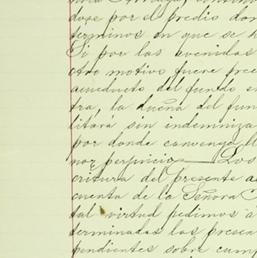 dose por el predio don
terminos en que se h
Si por las avenidas
otro motivo fuere prec
acueducto del fundo en
tra, la dueña del fun
litará sin indemniza
por donde convenga ll
nor perjuicio. Los
critura del presente a
cuenta de la Señora
tal virtud pedimos á
terminadas las presca
pendientes sobre cump